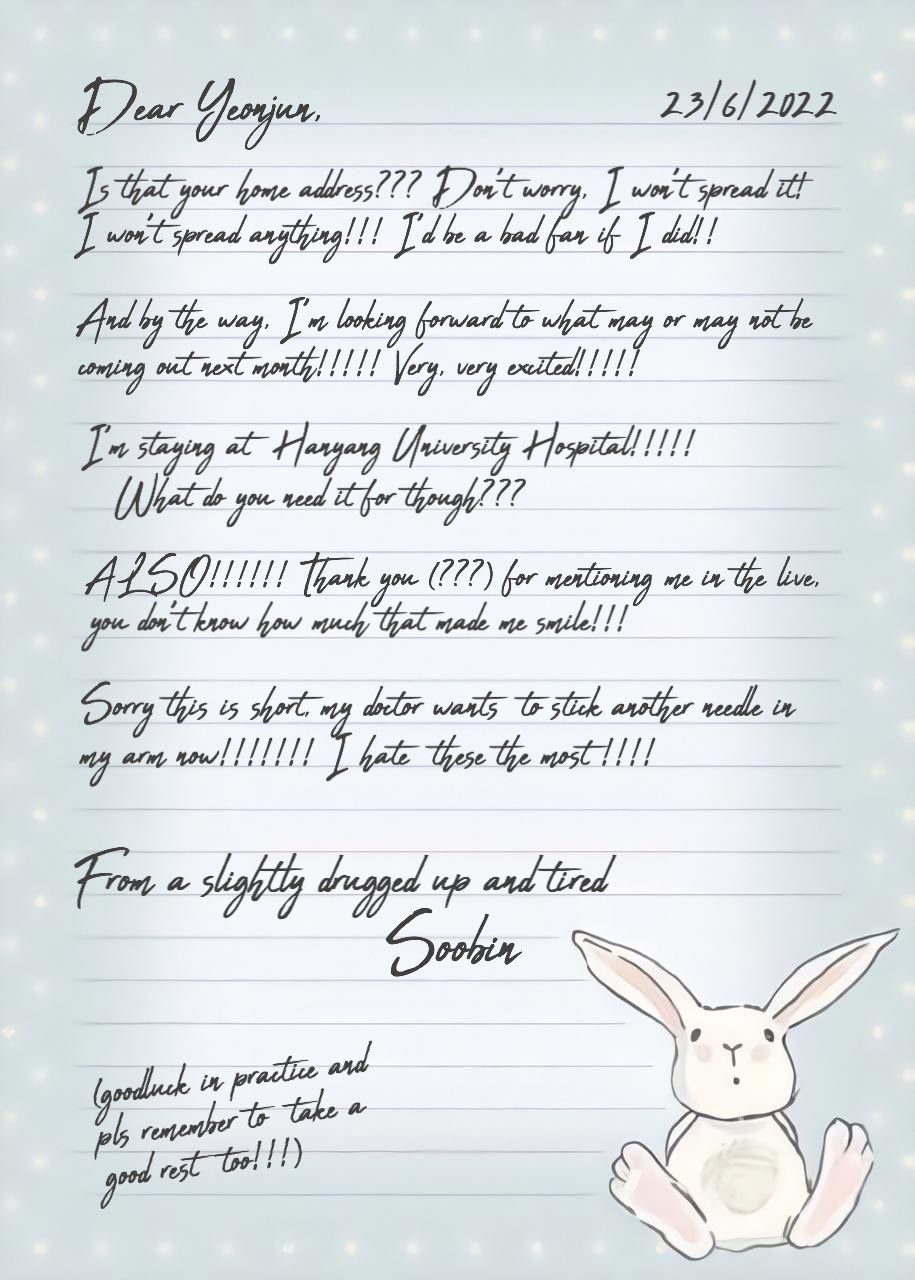 Dear Yeonjun,
23/6/2022
Is that your home address??? Don't worry, I won't spread it!
I won't spread anything!!! I'd be a bad fan if I did!!
And by the way, I'm looking forward to what may or may not be
coming out next month!!!!! Very, very excited!!!!!
I'm staying at Hanyang University Hospital!!!!!
What do you need it for though???
ALSO!!!!!! Thank you (???) for mentioning me in the live,
you don't know how much that made me smile!!!
Sorry this is short, my doctor wants to stick another needle in
my arm now!!!!!!! I hate these the most!!!!
From a slightly drugged up and tired
Soobin
(goodluck in practice and
pls remember to take a
good rest too!!!)